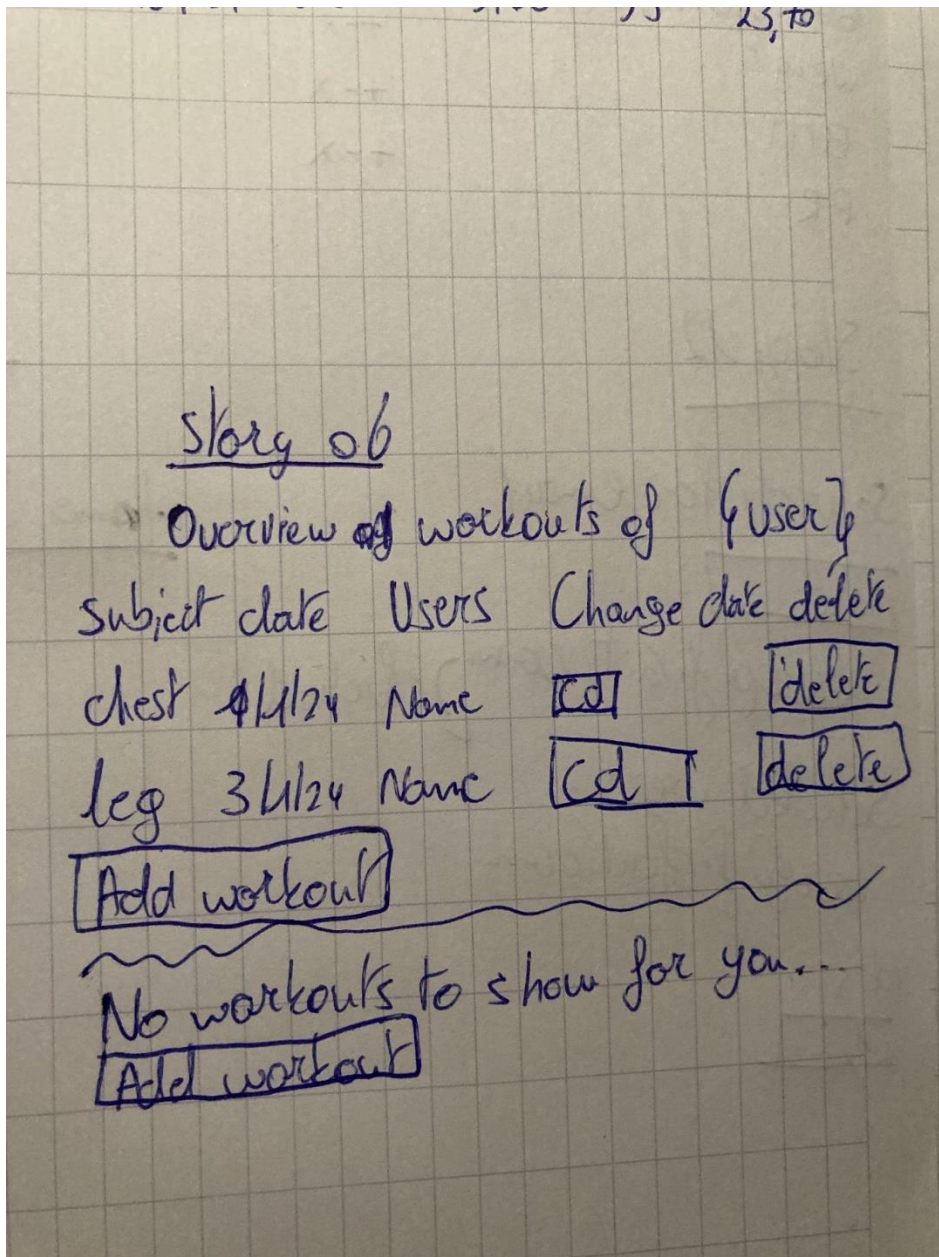 23,70
Story 06
Overview of workouts of {user}
subject date Users Change date delete
chest 1/1/24 Name cd delete
leg 3/1/24 Name cd delete
Add workout
No workouts to show for you...
Add workout